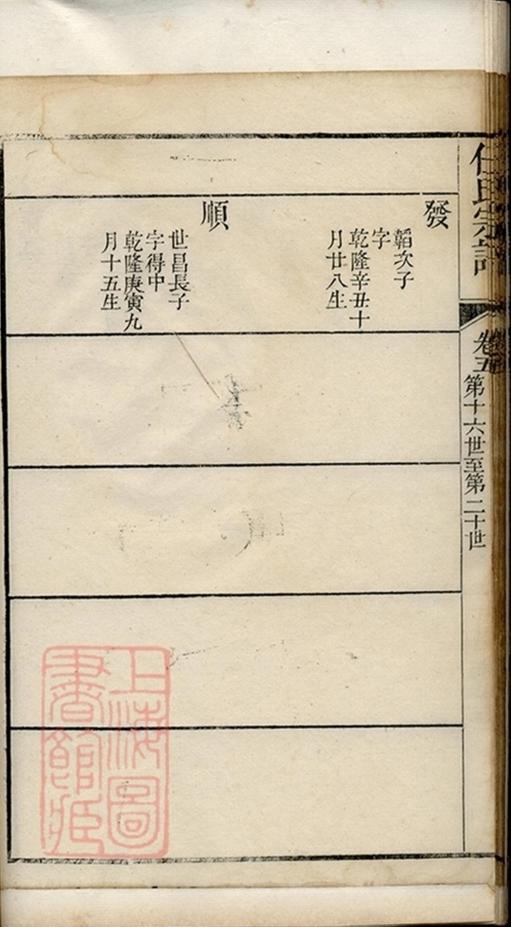 任氏宗譜
卷五
第十六世至第二十世
發
韜次子
字
乾隆辛丑十
月廿八生
順
世昌長子
字得中
乾隆庚寅九
月十五生
上海圖
書館藏